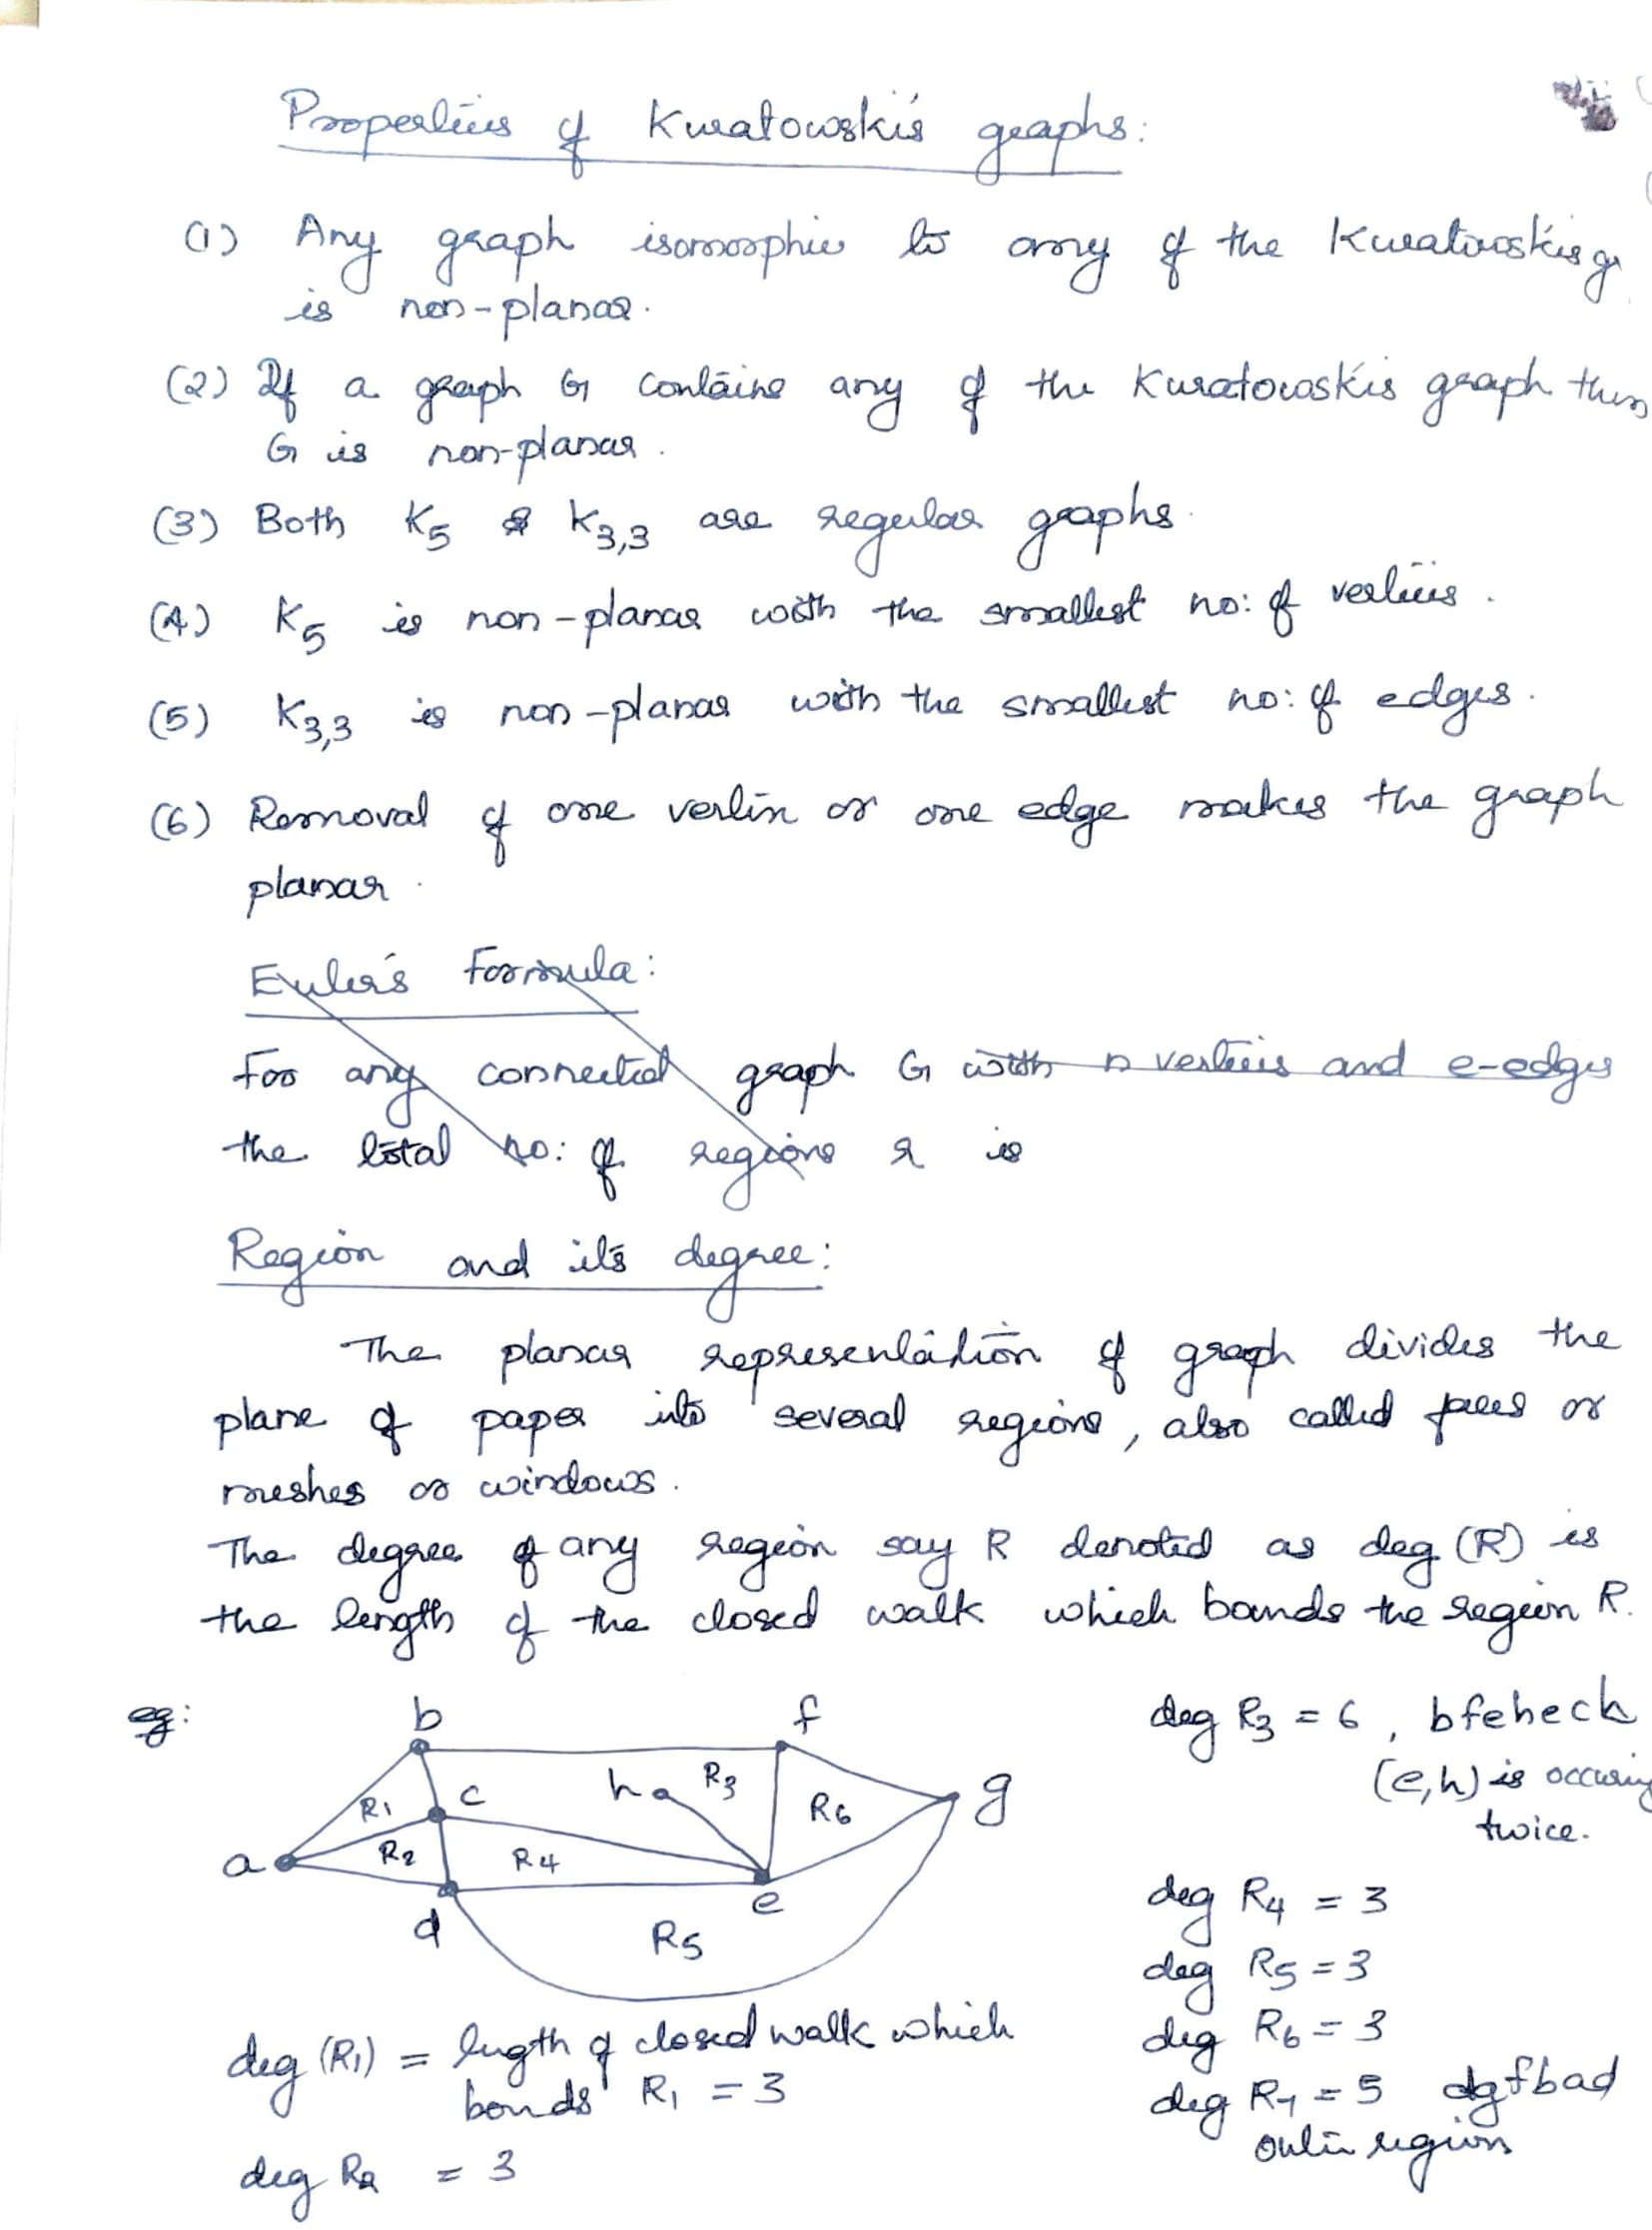 Properties of Kuratowski's graphs:
(1) Any graph isomorphic to any of the Kuratowskis g
is non-planar.
(2) If a graph G contains any of the Kuratowskis graph then
G is non-planar.
(3) Both K5 & K3,3 are regular graphs.
(4) K5 is non-planar with the smallest no: of vertices.
(5) K3,3 is non-planar with the smallest no: of edges.
(6) Removal of one vertex or one edge makes the graph
planar.
Euler's Formula:
For any connected graph G with n vertices and e-edges
the total no: of regions r is
Region and its degree:
The planar representation of graph divides the
plane of paper into several regions, also called faces or
meshes or windows.
The degree of any region say R denoted as deg (R) is
the length of the closed walk which bounds the region R.
eg:
b f
h R3 g
R1 c R6
a R2 R4
d e
R5
deg (R1) = length of closed walk which
bounds R1 = 3
deg R2 = 3
deg R3 = 6, bfehecb
(e,h) is occuring
twice.
deg R4 = 3
deg R5 = 3
deg R6 = 3
deg R7 = 5 dgfbad
outer region